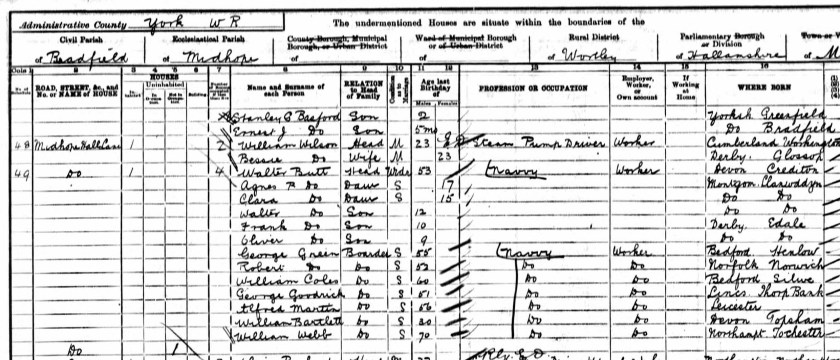 Administrative County York W R The undermentioned Houses are situate within the boundaries of the
Civil Parish Ecclesiastical Parish County Borough, Municipal Borough, or Urban District Ward of Municipal Borough or of Urban District Rural District Parliamentary Borough or Division Town or
of Bradfield of Midhope of of of Wortley of Hallamshire of
1 2 3 4 5 6 7 8 9 10 11 12 13 14 15 16
ROAD, STREET, &c., and No. or NAME of HOUSE HOUSES Uninhabited Name and Surname of each Person RELATION to Head of Family Condition as to Marriage Age last Birthday of PROFESSION OR OCCUPATION Employer, Worker, or Own account If Working at Home WHERE BORN
Males Females
Stanley G Basford Son 2 Yorksh Greenfield
Ernest J Do Son 5mo Do Bradfield
48 Midhope Hall Lane 1 2 William Wilson Head M 23 Steam Pump Driver Worker Cumberland Workington
Bessie Do Wife M 23 Derby Glossop
49 Do 1 4 Walter Butt Head Widr 53 Navvy Worker Devon Crediton
Agnes Do Daur S 17 Montgom Llanwddyn
Clara Do Daur S 15 Do Do
Walter Do Son 12 Do Do
Frank Do Son 10 Derby Edale
Oliver Do Son 9 Do Do
George Green Boarder S 55 Navvy Worker Bedford Henlow
Robert Do Do S 52 Do Do Norfolk Norwich
William Coles Do S 60 Do Do Bedford
George Goodrick Do S 51 Do Do Lincs Thorp Bank
Alfred Martin Do S 56 Do Do Leicester
William Bartlett Do S 30 Do Do Devon Topsham
William Webb Do S 70 Do Do Northampt Tochester
Do 1